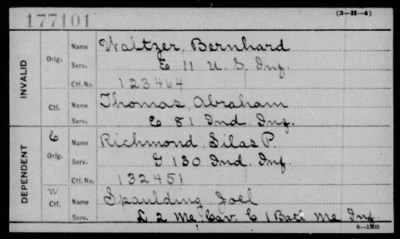 177101
(3-H-4)
INVALID
Orig.
Name Waltzer, Bernhard
Serv. E 11 U. S. Inf
Ctf. No. 123464
Ctf.
Name Thomas, Abraham
Serv. E 81 Ind. Inf.
DEPENDENT
C
Orig.
Name Richmond, Silas P.
Serv. G 130 Ind. Inf.
Ctf. No. 132451
W
Ctf.
Name Spaulding, Joel
Serv. L 2 Me Cav. E 1 Batt Me Inf